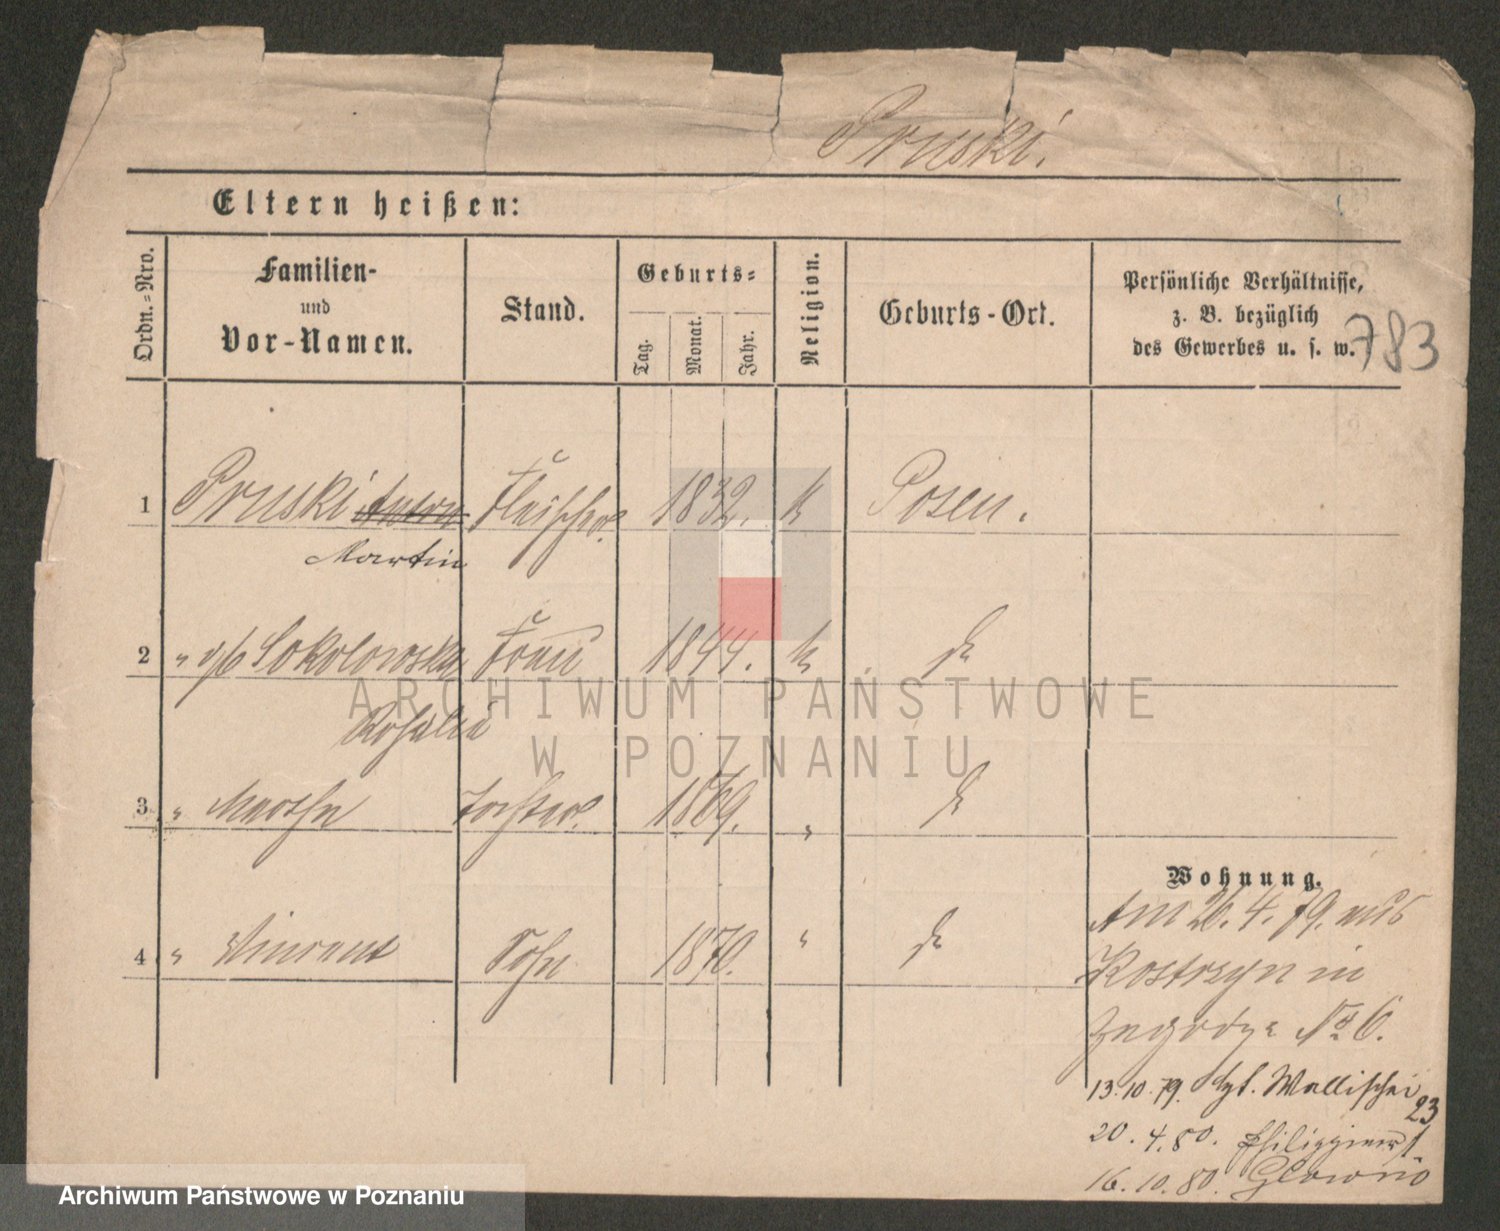 Pruski.
Eltern heißen:
Ordn.-Nro.
Familien-
und
Vor-Namen.
Stand.
Geburts-
Tag.
Monat.
Jahr.
Religion.
Geburts-Ort.
Persönliche Verhältnisse,
z. B. bezüglich
des Gewerbes u. s. w.
783
1 Pruski Anton Fleischer. 1832. k Posen.
Martin
2 " geb Sokolowska Frau 1844. k do
Rosalia
3 " Martha Tochter. 1869. " do
4 " Vincent Sohn 1870. " do
Wohnung.
Am 26.4.79. aus
Kostrzyn in
Zagórze No 6.
13.10.79. Wallischei 23
20.4.80. Philippiner 1
16.10.80. Glowno
ARCHIWUM PAŃSTWOWE
W POZNANIU
Archiwum Państwowe w Poznaniu